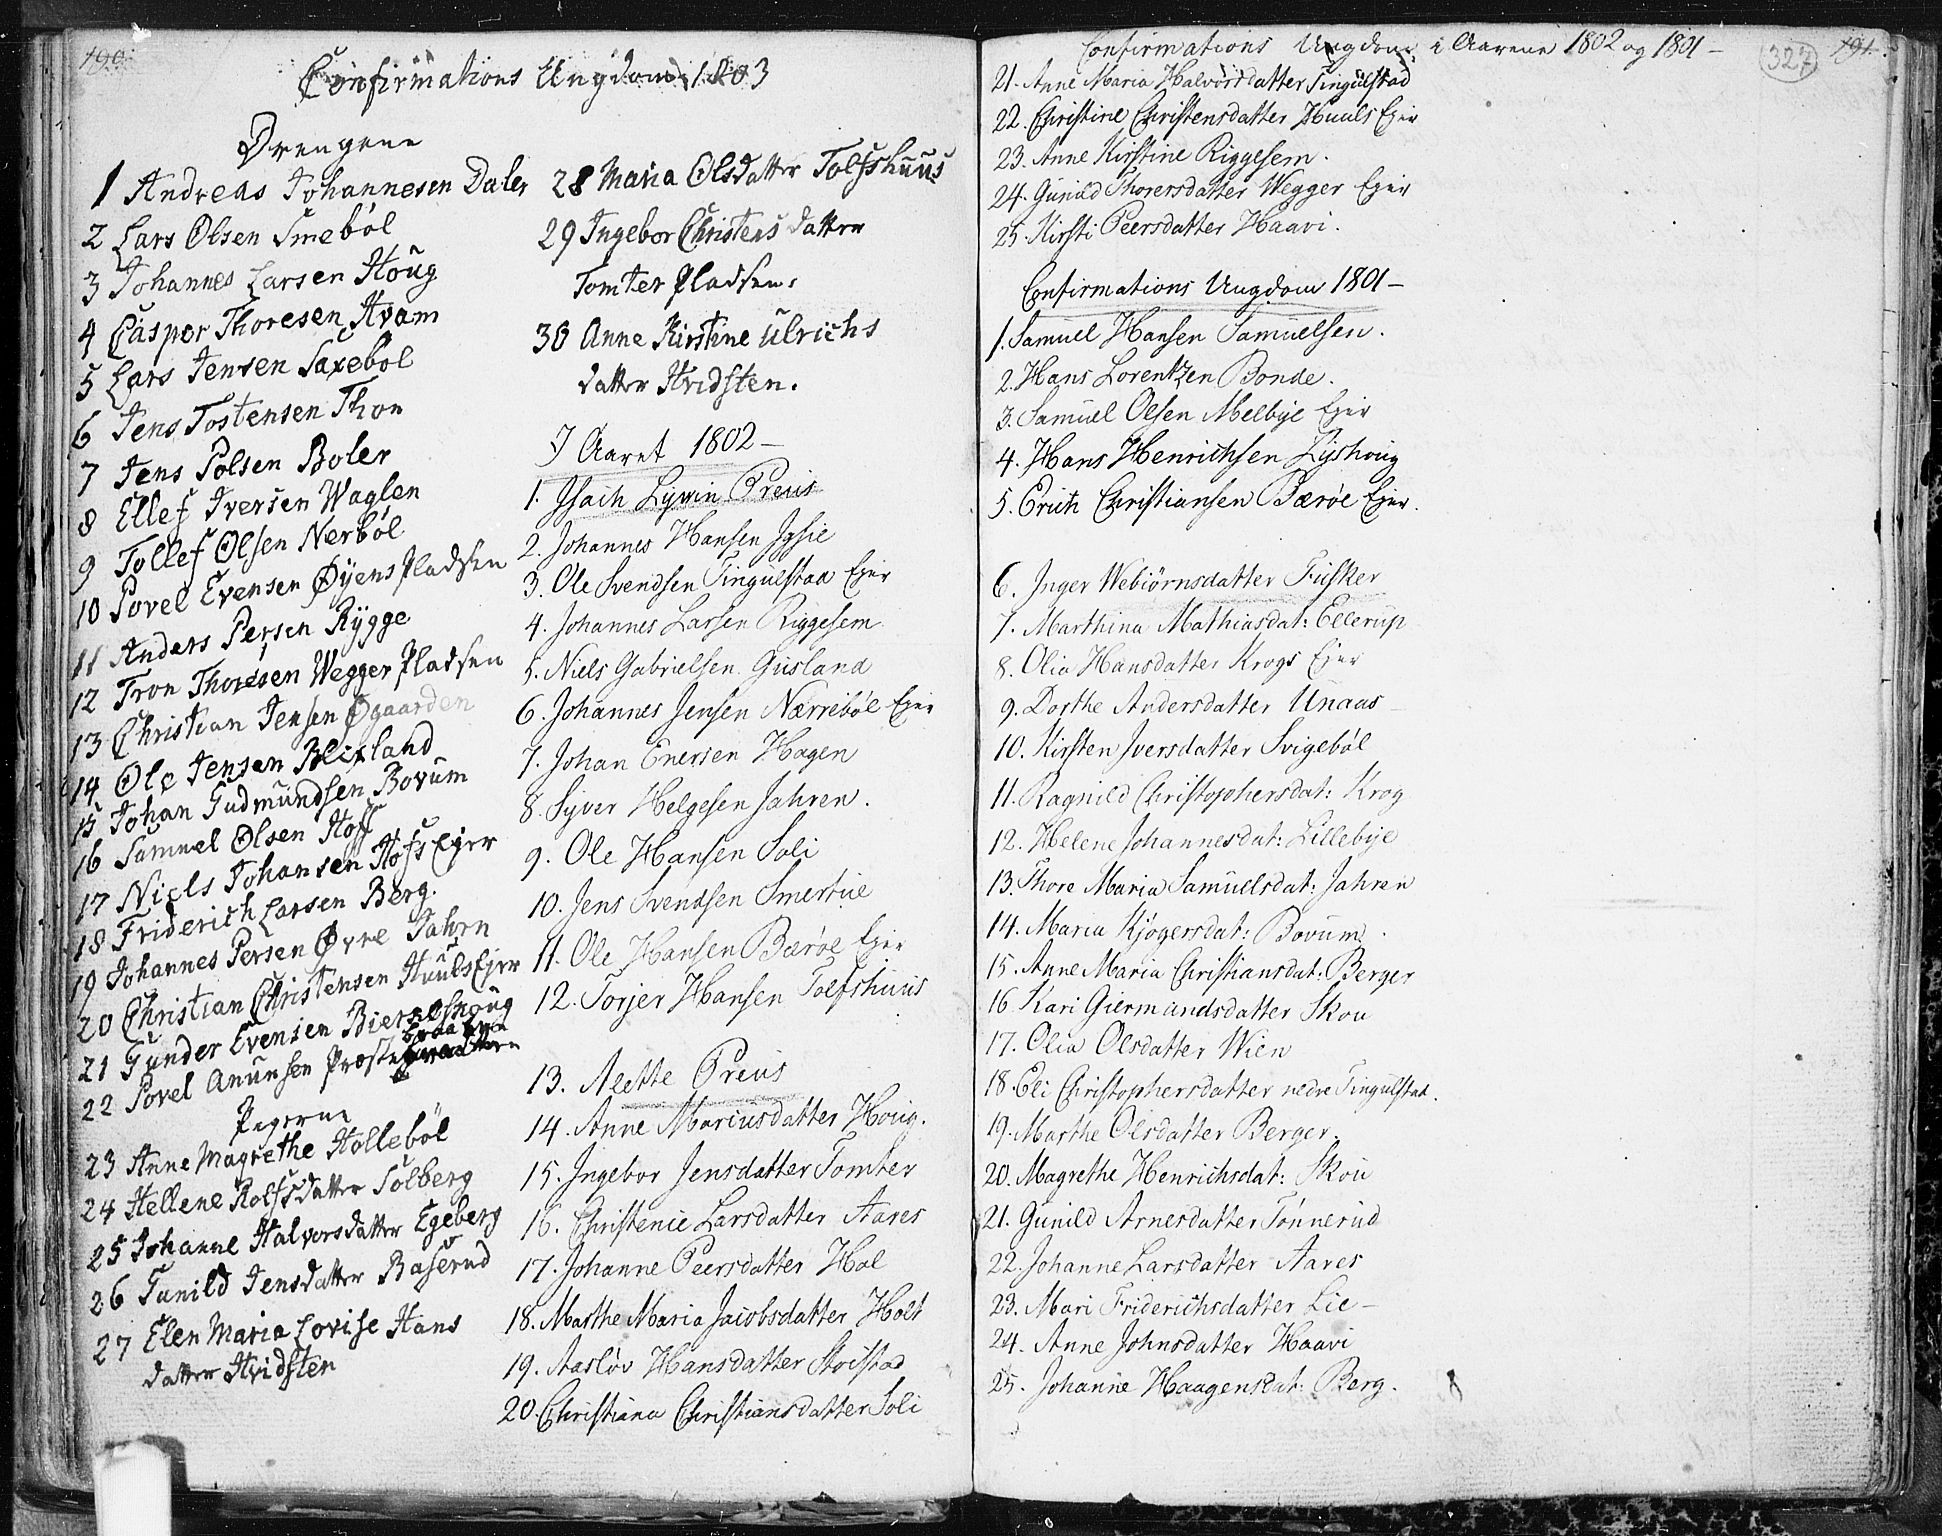 190.
Confirmations Ungdom 1803
Drengene
1 Andreas Johannesen Daler
2 Lars Olsen Smeböl
3 Johannes Larsen Houg
4 Casper Thoresen Hvam
5 Lars Jensen Saxeböl
6 Jens Tostensen Thon
7 Jens Polsen Boler
8 Ellef Iversen Waglen
9 Tollef Olsen Nerböl
10 Povel Evensen Øÿens Pladsen
11 Anders Persen Rÿgge
12 Tron Thoresen Wegger Pladsen
13 Christian Jensen Øgaarden
14 Ole Jensen Blixland
15 Johan Gudmundsen Bovum
16 Samuel Olsen Hoff
17 Niels Johansen Hofs Ejer
18 Friderich Larsen Berg.
19 Johannes Persen Øvre Jahren
20 Christian Christensen Huuls Ejer
21 Gunder Evensen Bierneshoug
22 Povel Anunsen Præste
Pigerne
23 Anne Magrethe Holleböl
24 Hellene Rolfsdatter Solberg
25 Johanne Halvorsdatter Egeberg
26 Gunild Jensdatter Baserud
27 Elen Maria Lovise Hans
datter Hvidsten
28 Maria Olsdatter Tolfshuus
29 Ingebor Christens datter
Tomter Pladsen.
30 Anne Kirstine Ulrichs
datter Hvidsten.
I Aaret 1802 –
1. Isach Preus
2. Johannes Hansen Igsie
3. Ole Svendsen Tingulstad Ejer
4. Johannes Larsen Riggesem
5. Niels Gabrielsen Gusland
6. Johannes Jensen Nærreböl Ejer
7. Johan Enersen Hagen
8. Syver Helgesen Jahren.
9. Ole Hansen Soli
10. Jens Svendsen Smertue
11. Ole Hansen Bæröe Ejer
12. Torjer Hansen Tolfshuus
13. Alette Preus
14. Anne Mariusdatter Houg.
15. Ingebor Jensdatter Tomter
16. Christenie Larsdatter Aares
17. Johanne Peersdatter Hol
18. Marthe Maria Jacobsdatter Holt
19. Aaslöv Hansdatter Stoistad
20. Christiana Christiansdatter Soli
Confirmations Ungdom i Aarene 1802 og 1801 –
327
191.
21. Anne Maria Halvorsdatter Tingulstad
22. Christine Christensdatter Huuls Ejer
23. Anne Kirstine Riggesem.
24. Gunild Thorersdatter Wegger Ejer
25. Kirsti Peersdatter Haavi.
Confirmations Ungdom 1801 –
1. Samuel Hansen Samuelsen.
2. Hans Lorentzen Bonde.
3. Samuel Olsen Melbye Ejer
4. Hans Henrichsen Lyshoug
5. Erich Christiansen Bæröe Ejer.
6. Inger Webiörnsdatter Fusker
7. Marthina Mathiasdat: Ellerup
8. Olia Hansdatter Krogs Ejer
9. Dorthe Andersdatter Unaas –
10. Kirsten Iversdatter Svigeböl
11. Ragnild Christophersdat: Krog
12. Helene Johannesdat: Lillebye
13. Thore Maria Samuelsdat: Jahren
14. Maria Kjögersdat: Bovum.
15. Anne Maria Christiansdat: Berger
16. Kari Giermundsdatter Skou
17. Olia Olsdatter Wien
18. Eli Christophersdatter nedre Tingulstad.
19. Marthe Olsdatter Berger.
20. Magrethe Henrichsdat: Skou
21. Gunild Arnesdatter Tönnerud
22. Johanne Larsdatter Aares
23. Mari Friderichsdatter Lie –
24. Anne Johnsdatter Haavi
25. Johanne Haagensdat: Berg.